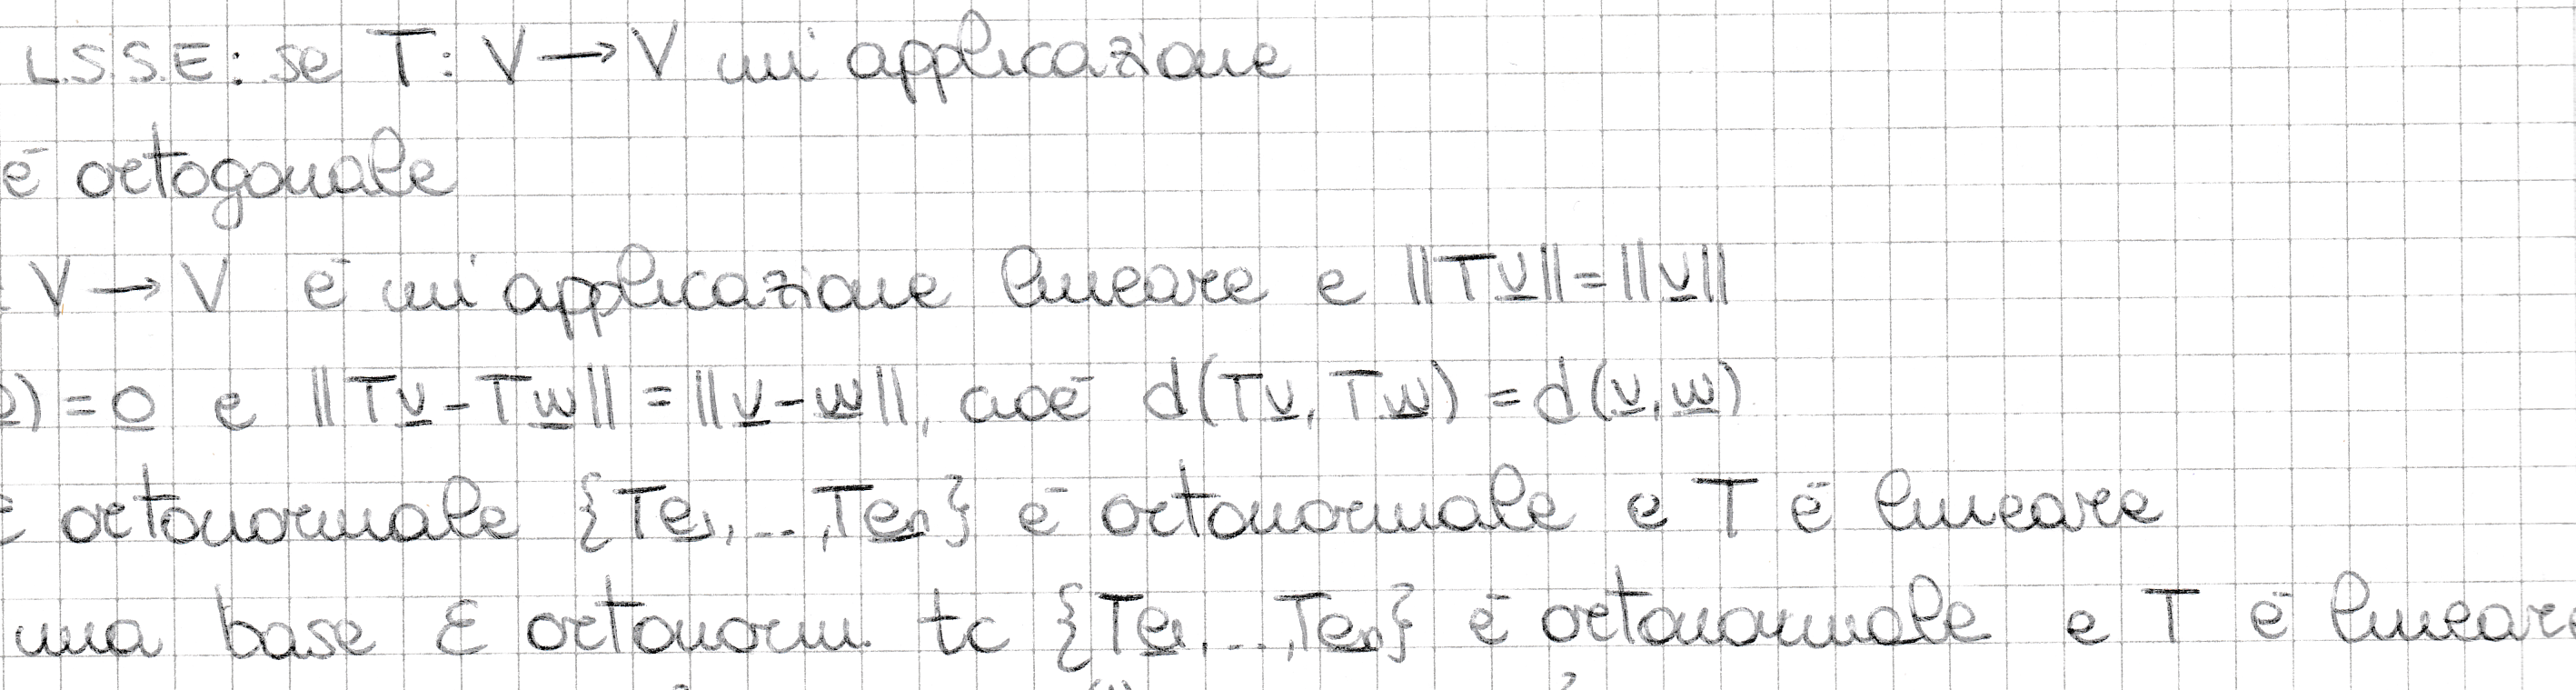 L.S.S.E: se T: V → V un'applicazione
è ortogonale
V → V è un'applicazione lineare e ||Tv̲|| = ||v̲||
) = 0̲ e ||Tv̲ - Tw̲|| = ||v̲ - w̲||, cioè d(Tv̲, Tw̲) = d(v̲, w̲)
ortonormale {Te̲₁, ..., Te̲ₙ} è ortonormale e T è lineare
una base E ortonorm. tc {Te̲₁, ..., Te̲ₙ} è ortonormale e T è lineare